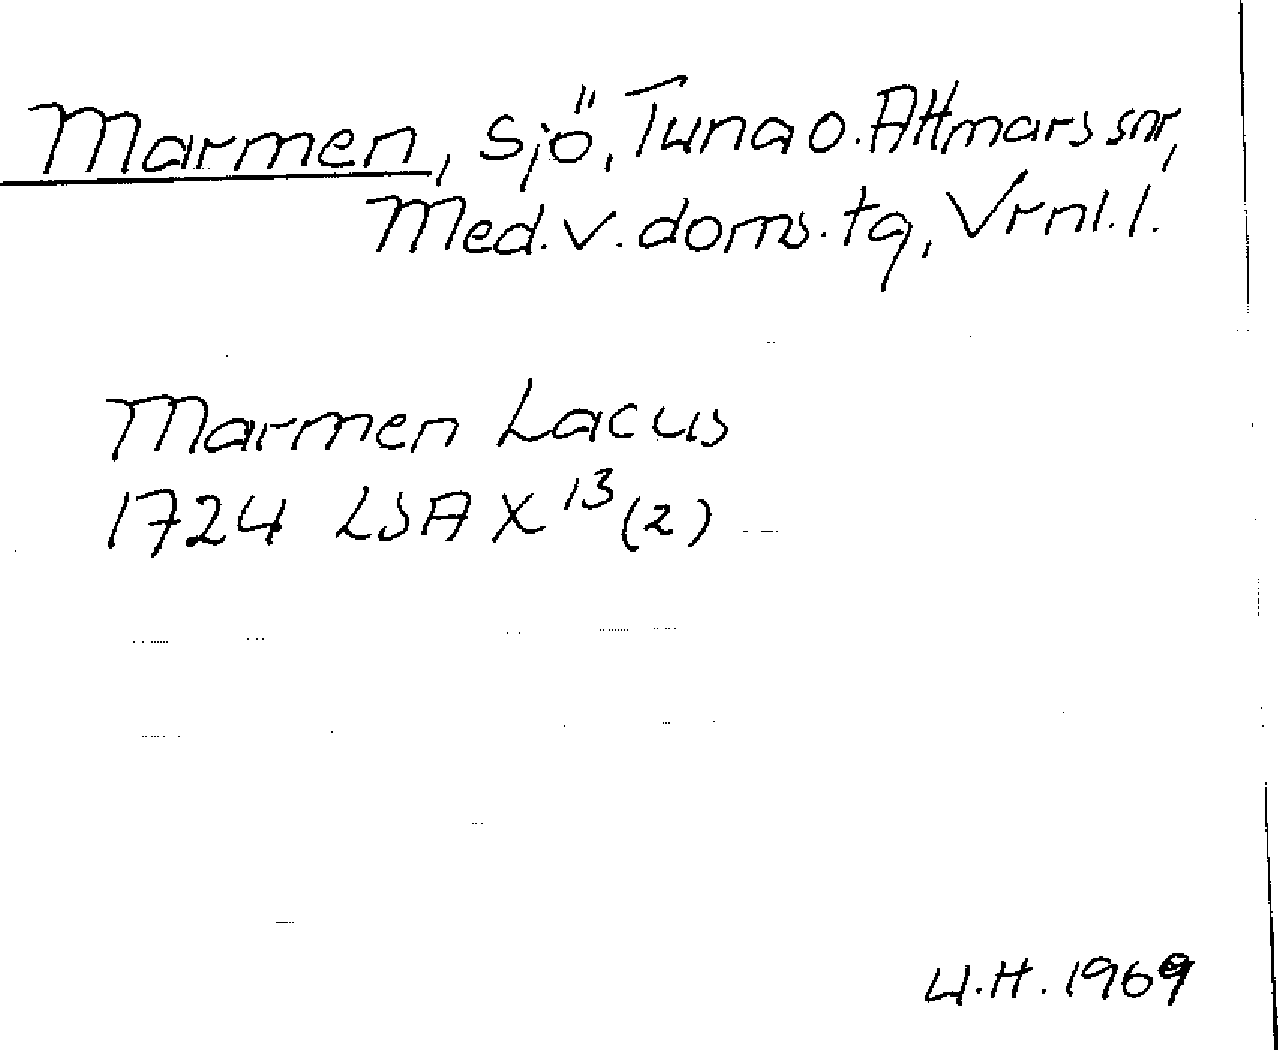 Marmen, sjö, Tuna o. Attmars snr,
Med. v. doms. tg, Vrnl. l.
Marmen Lacus
1724 LSA X 13 (2)
U.H. 1969